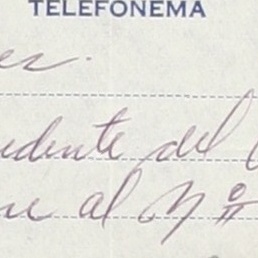 TELEFONEMA
es.
idente del
al Nº